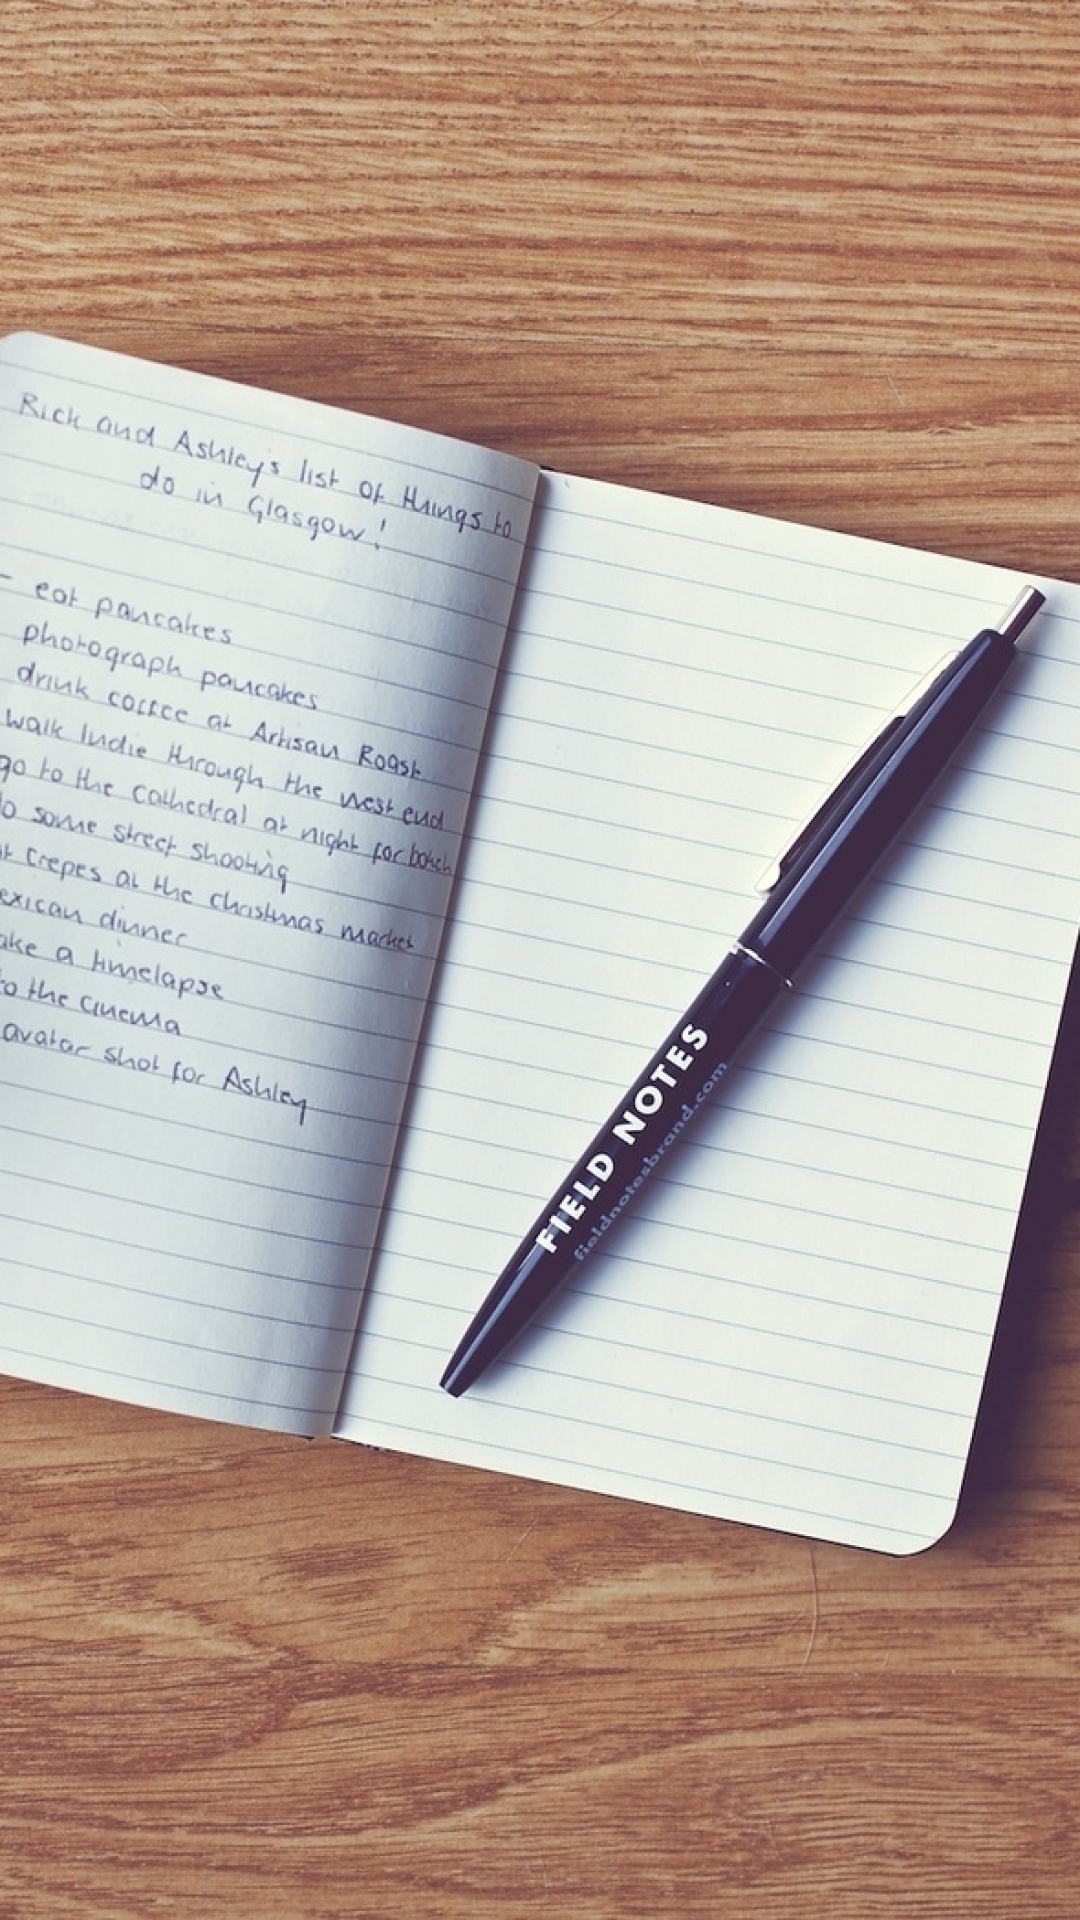 Rick and Ashley's list of things to
do in Glasgow!
- eat pancakes
photograph pancakes
drink coffee at Artisan Roast
walk Indie through the west end
go to the cathedral at night for bokeh
do some street shooting
crepes at the christmas market
exican dinner
ake a timelapse
to the cinema
avatar shot for Ashley
FIELD NOTES
fieldnotesbrand.com